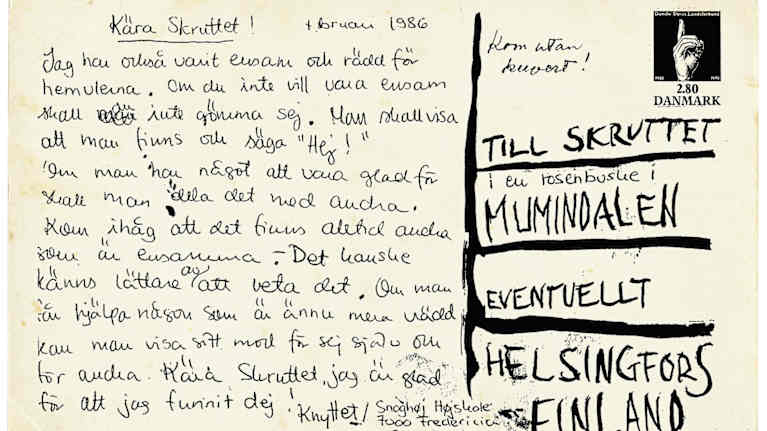 Kära Skruttet! februari 1986
Jag har också varit ensam och rädd för
hemulerna. Om du inte vill vara ensam
skall inte gömma sej. Man skall visa
att man finns och säga "Hej!"
Om man har något att vara glad för
skall man dela det med andra.
Kom ihåg att det finns alltid andra
som är ensamma. – Det kanske
känns lättare av att veta det. Om man
får hjälpa någon som är ännu mera rädd
kan man visa sitt mod för sej själv och
för andra. Kära Skruttet, jag är glad
för att jag funnit dej! Knyttet/ Snoghøj Højskole
7000 Fredericia
Kom utan
kuvert!
Danske Døves Landsforbund
1935 1985
2.80
DANMARK
TILL SKRUTTET
i en rosenbuske i
MUMINDALEN
EVENTUELLT
HELSINGFORS
FINLAND